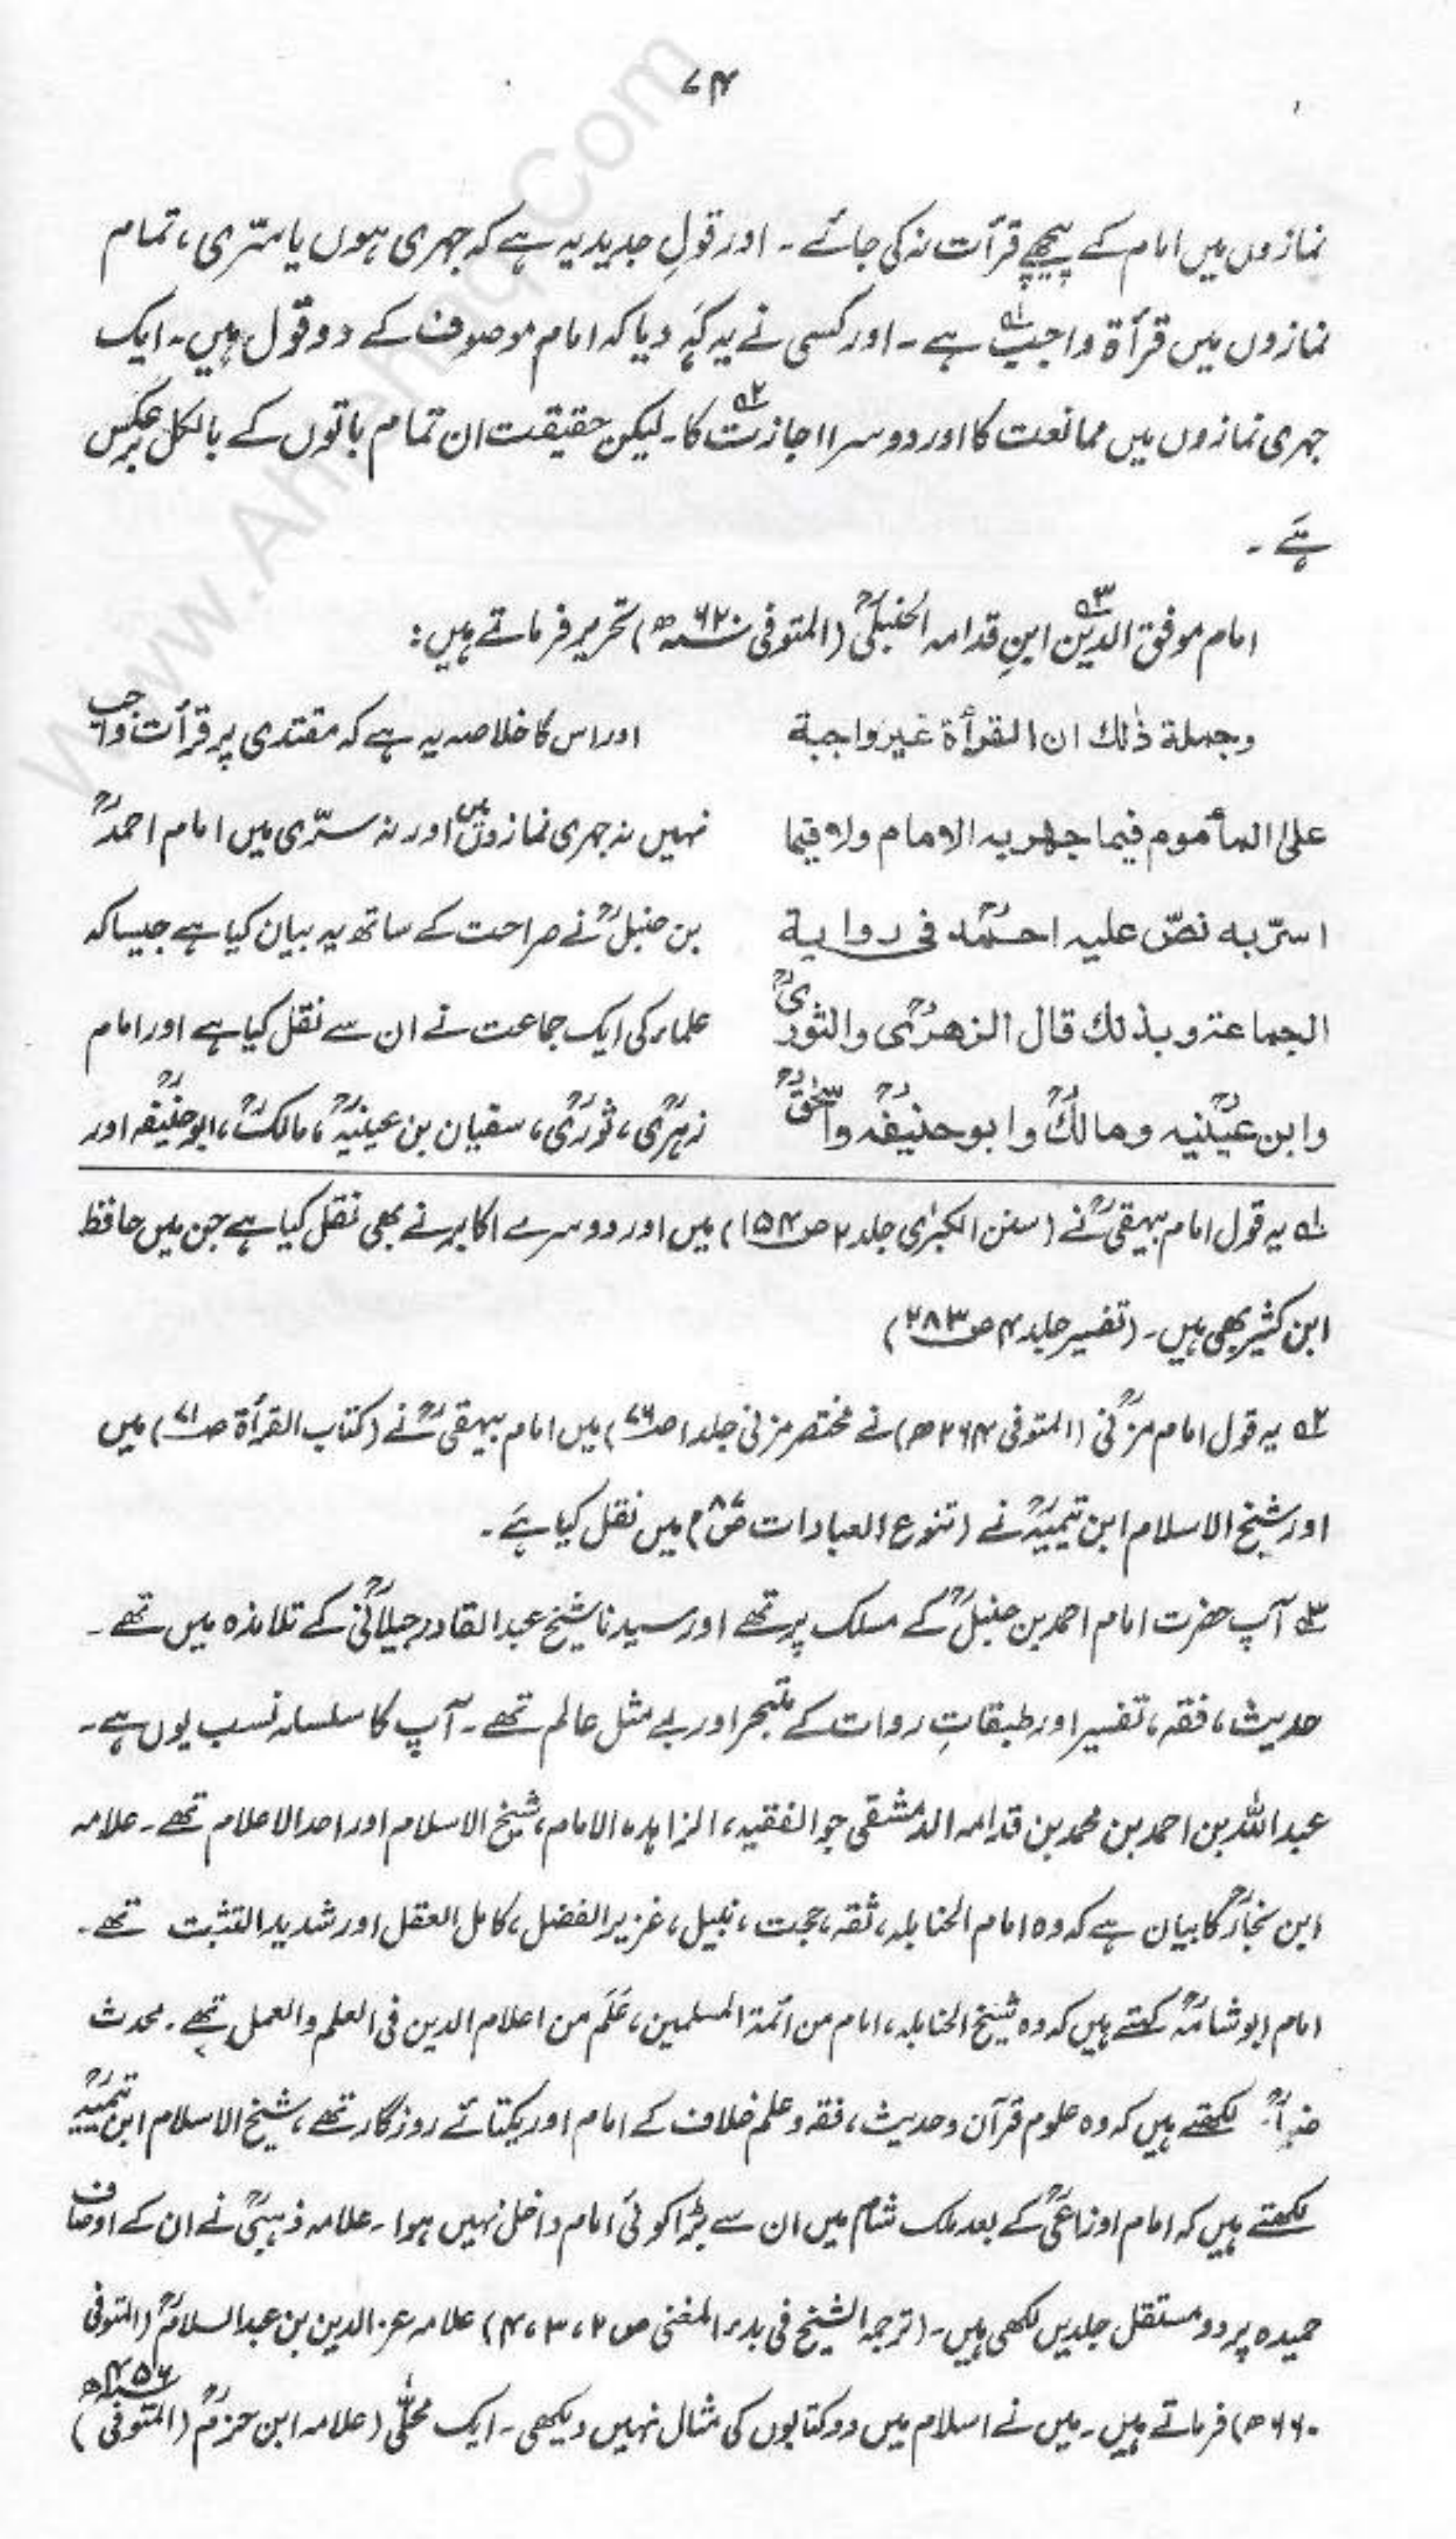 ۷۴
نمازوں میں امام کے پیچھے قرأت نہ کی جائے ۔ اور قولِ جدید یہ ہے کہ جہری ہوں یا سرّی، تمام
نمازوں میں قرأۃ واجب۱؎ ہے ۔ اور کسی نے یہ کہہ دیا کہ امام موصوف کے دو قول ہیں ۔ ایک
جہری نمازوں میں ممانعت کا اور دوسرا اجازت۲؎ کا ۔ لیکن حقیقت ان تمام باتوں کے بالکل برعکس
ہے ۔
امام موفق الدین۳؎ ابنِ قدامہ الحنبلیؒ (المتوفی ۶۲۰ھ) تحریر فرماتے ہیں:
وجملة ذٰلك ان القرأة غير واجبة
على المأموم فيما جهر به الامام ولا فيما
اسرّ به نصّ عليه احمدؒ فى رواية
الجماعة وبذلك قال الزهرىؒ والثورىؒ
وابن عيينهؒ ومالكؒ وابو حنيفهؒ واسحٰقؒ
اور اس کا خلاصہ یہ ہے کہ مقتدی پر قرأت واجب
نہیں نہ جہری نمازوں میں اور نہ سرّی میں امام احمدؒ
بن حنبلؒ نے صراحت کے ساتھ یہ بیان کیا ہے جیسا کہ
علماء کی ایک جماعت نے ان سے نقل کیا ہے اور امام
زہریؒ، ثوریؒ، سفیان بن عیینہؒ، مالکؒ، ابو حنیفہؒ اور
۱؎ یہ قول امام بیہقیؒ نے (سنن الکبرٰی جلد ۲ ص ۱۵۴) میں اور دوسرے اکابر نے بھی نقل کیا ہے جن میں حافظ
ابن کثیر بھی ہیں ۔ (تفسیر جلد ۴ ص ۲۸۳)
۲؎ یہ قول امام مزنیؒ (المتوفی ۲۶۴ھ) نے مختصر مزنی جلد ۱ ص ۷۶) میں امام بیہقیؒ نے (کتاب القرأۃ ص ۷۱) میں
اور شیخ الاسلام ابن تیمیہؒ نے (تنوع العبادات ص ۸۷) میں نقل کیا ہے ۔
۳؎ آپ حضرت امام احمد بن حنبلؒ کے مسلک پر تھے اور سیدنا شیخ عبد القادر جیلانیؒ کے تلامذہ میں تھے ۔
حدیث، فقہ، تفسیر اور طبقاتِ روات کے متبحر اور بے مثل عالم تھے ۔ آپ کا سلسلہ نسب یوں ہے ۔
عبد اللہ بن احمد بن محمد بن قدامہ الدمشقی جو الفقیہ، الزاہد، الامام، شیخ الاسلام اور احد الاعلام تھے ۔ علامہ
ابن نجارؒ کا بیان ہے کہ وہ امام الحنابلہ، ثقہ، حجت، نبیل، غزیر الفضل، کامل العقل اور شدید التثبت تھے ۔
امام ابو شامہؒ کہتے ہیں کہ وہ شیخ الحنابلہ، امام من ائمۃ المسلمین، عَلَم من اعلام الدین فی العلم والعمل تھے ۔ محدث
ضیاءؒ لکھتے ہیں کہ وہ علومِ قرآن و حدیث، فقہ و علم خلاف کے امام اور یکتائے روزگار تھے، شیخ الاسلام ابن تیمیہؒ
لکھتے ہیں کہ امام اوزاعیؒ کے بعد ملک شام میں ان سے بڑا کوئی امام داخل نہیں ہوا ۔ علامہ ذہبیؒ نے ان کے اوصاف
حمیدہ پر دو مستقل جلدیں لکھی ہیں ۔ (ترجمۃ الشیخ فی بدء المغنی ص ۲، ۳، ۴) علامہ عز الدین بن عبد السلامؒ (المتوفی
۶۶۰ھ) فرماتے ہیں ۔ میں نے اسلام میں دو کتابوں کی مثال نہیں دیکھی ۔ ایک محلّٰی (علامہ ابن حزمؒ (المتوفی ۴۵۶ھ)